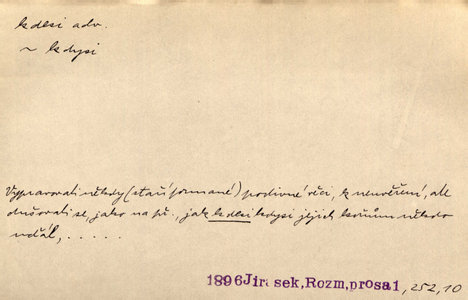 kdesi adv.
~ kdysi
Vypravovali někdy (staří formané) podivné věci, k neuvěření, ale
dušovali se, jako na př., jak kdesi kdysi jejich koňům někdo
udál, . . . . . .
1896 Jirásek, Rozm, prosa1, 252, 10